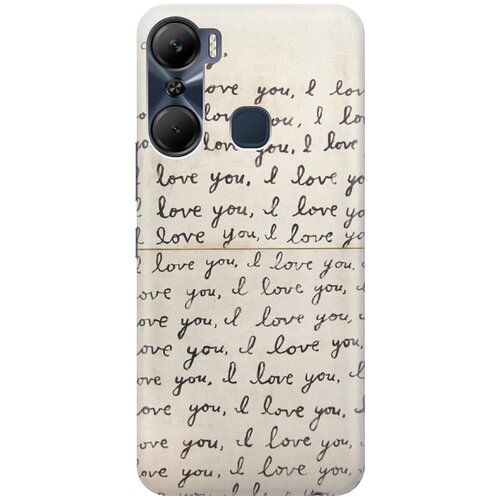 ove you, I lov
love you, I
love you, I love
love you, I love you
love you, I love yo
I love you, I love you
I love you, I love you,
ove you, I love you,
ove you, I love you,
ove you, I love you,
ove you, I love you, I
ove you, I love you, I
love you, I love you,
love you, I love you,